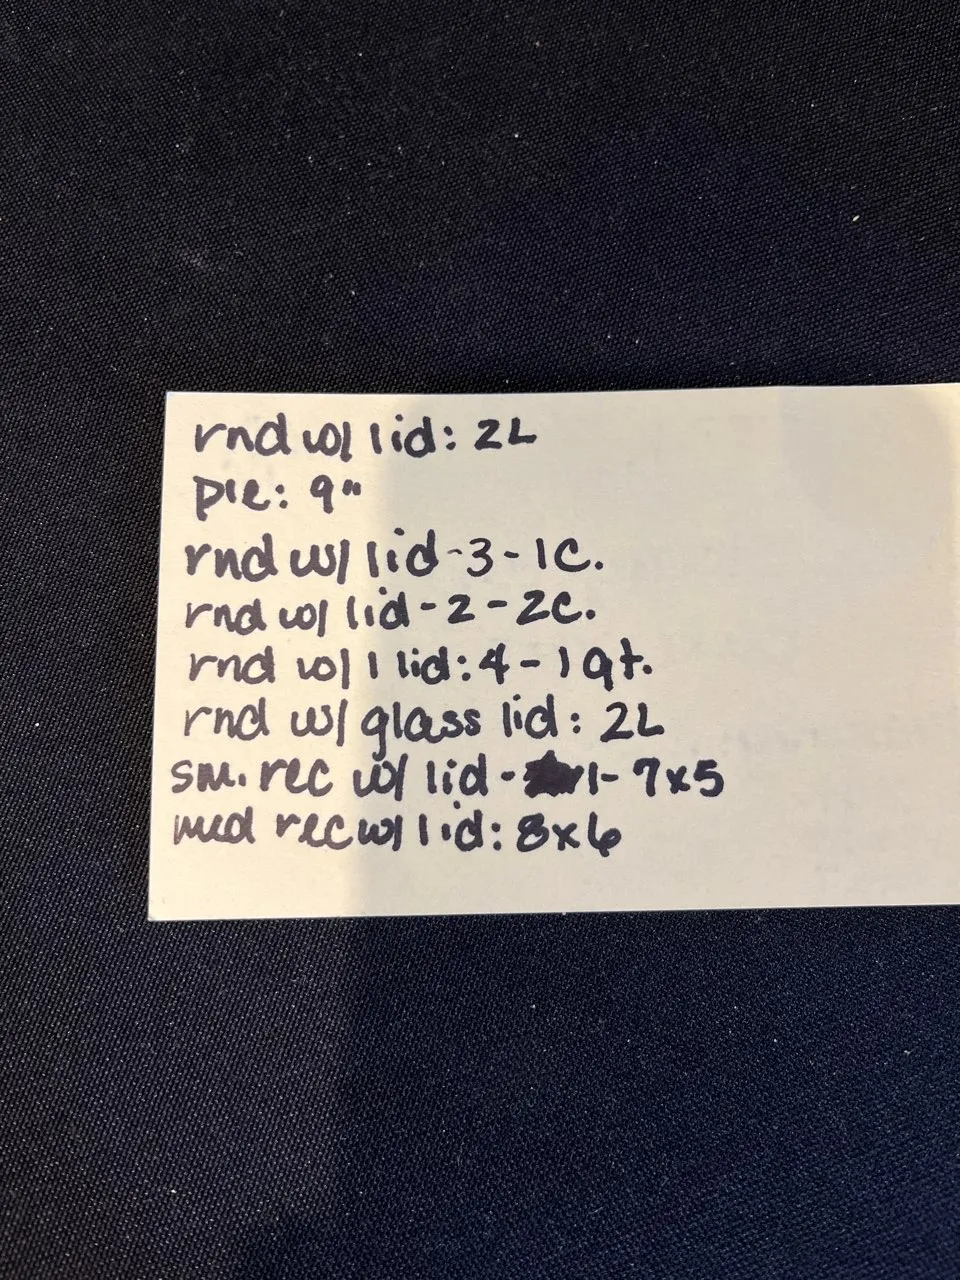 rnd w/ lid: 2L
pie: 9"
rnd w/ lid-3-1C.
rnd w/ lid-2-2C.
rnd w/ 1 lid: 4-1qt.
rnd w/ glass lid: 2L
sm. rec w/ lid-1-7x5
med rec w/ lid: 8x6